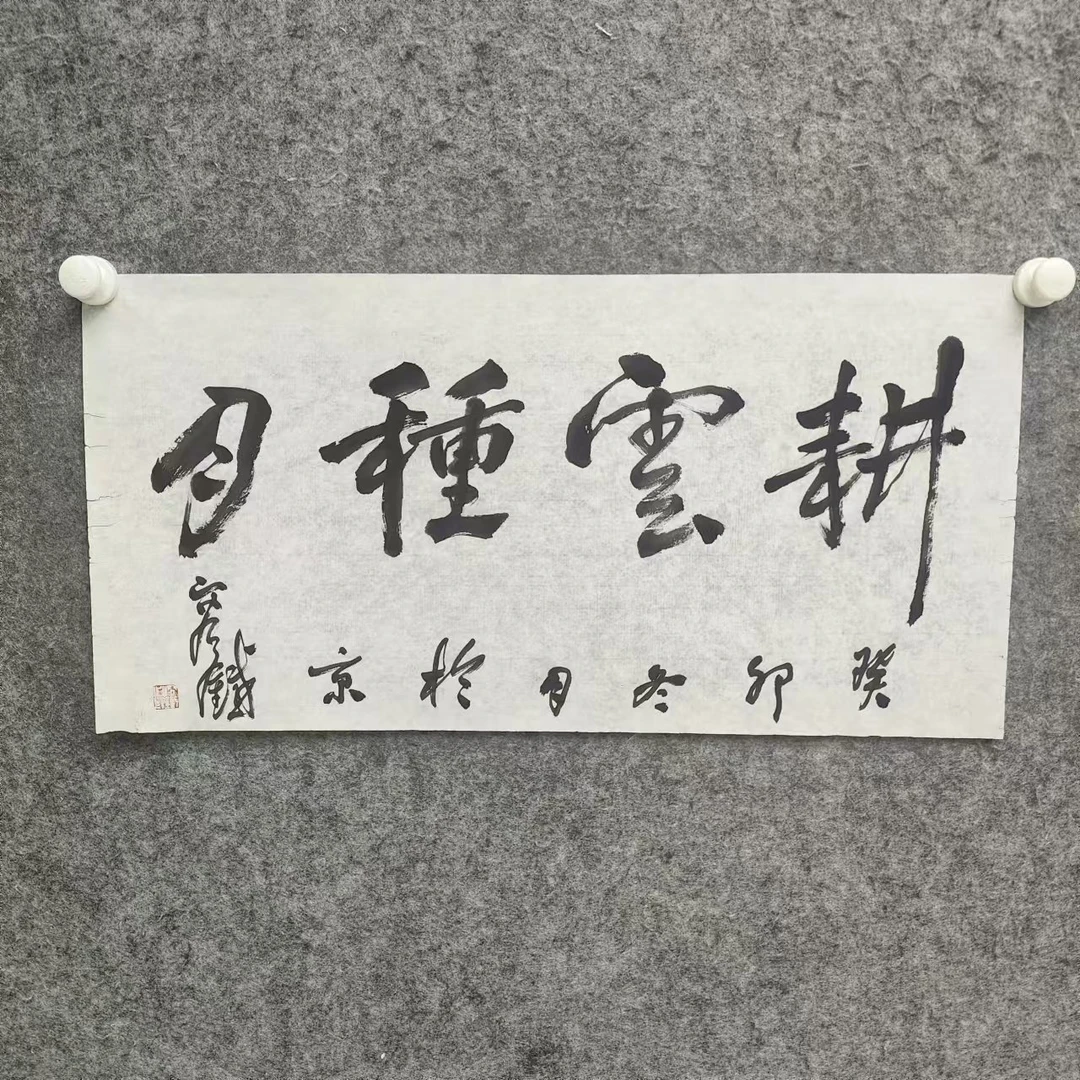 耕雲種月
癸卯冬月於京